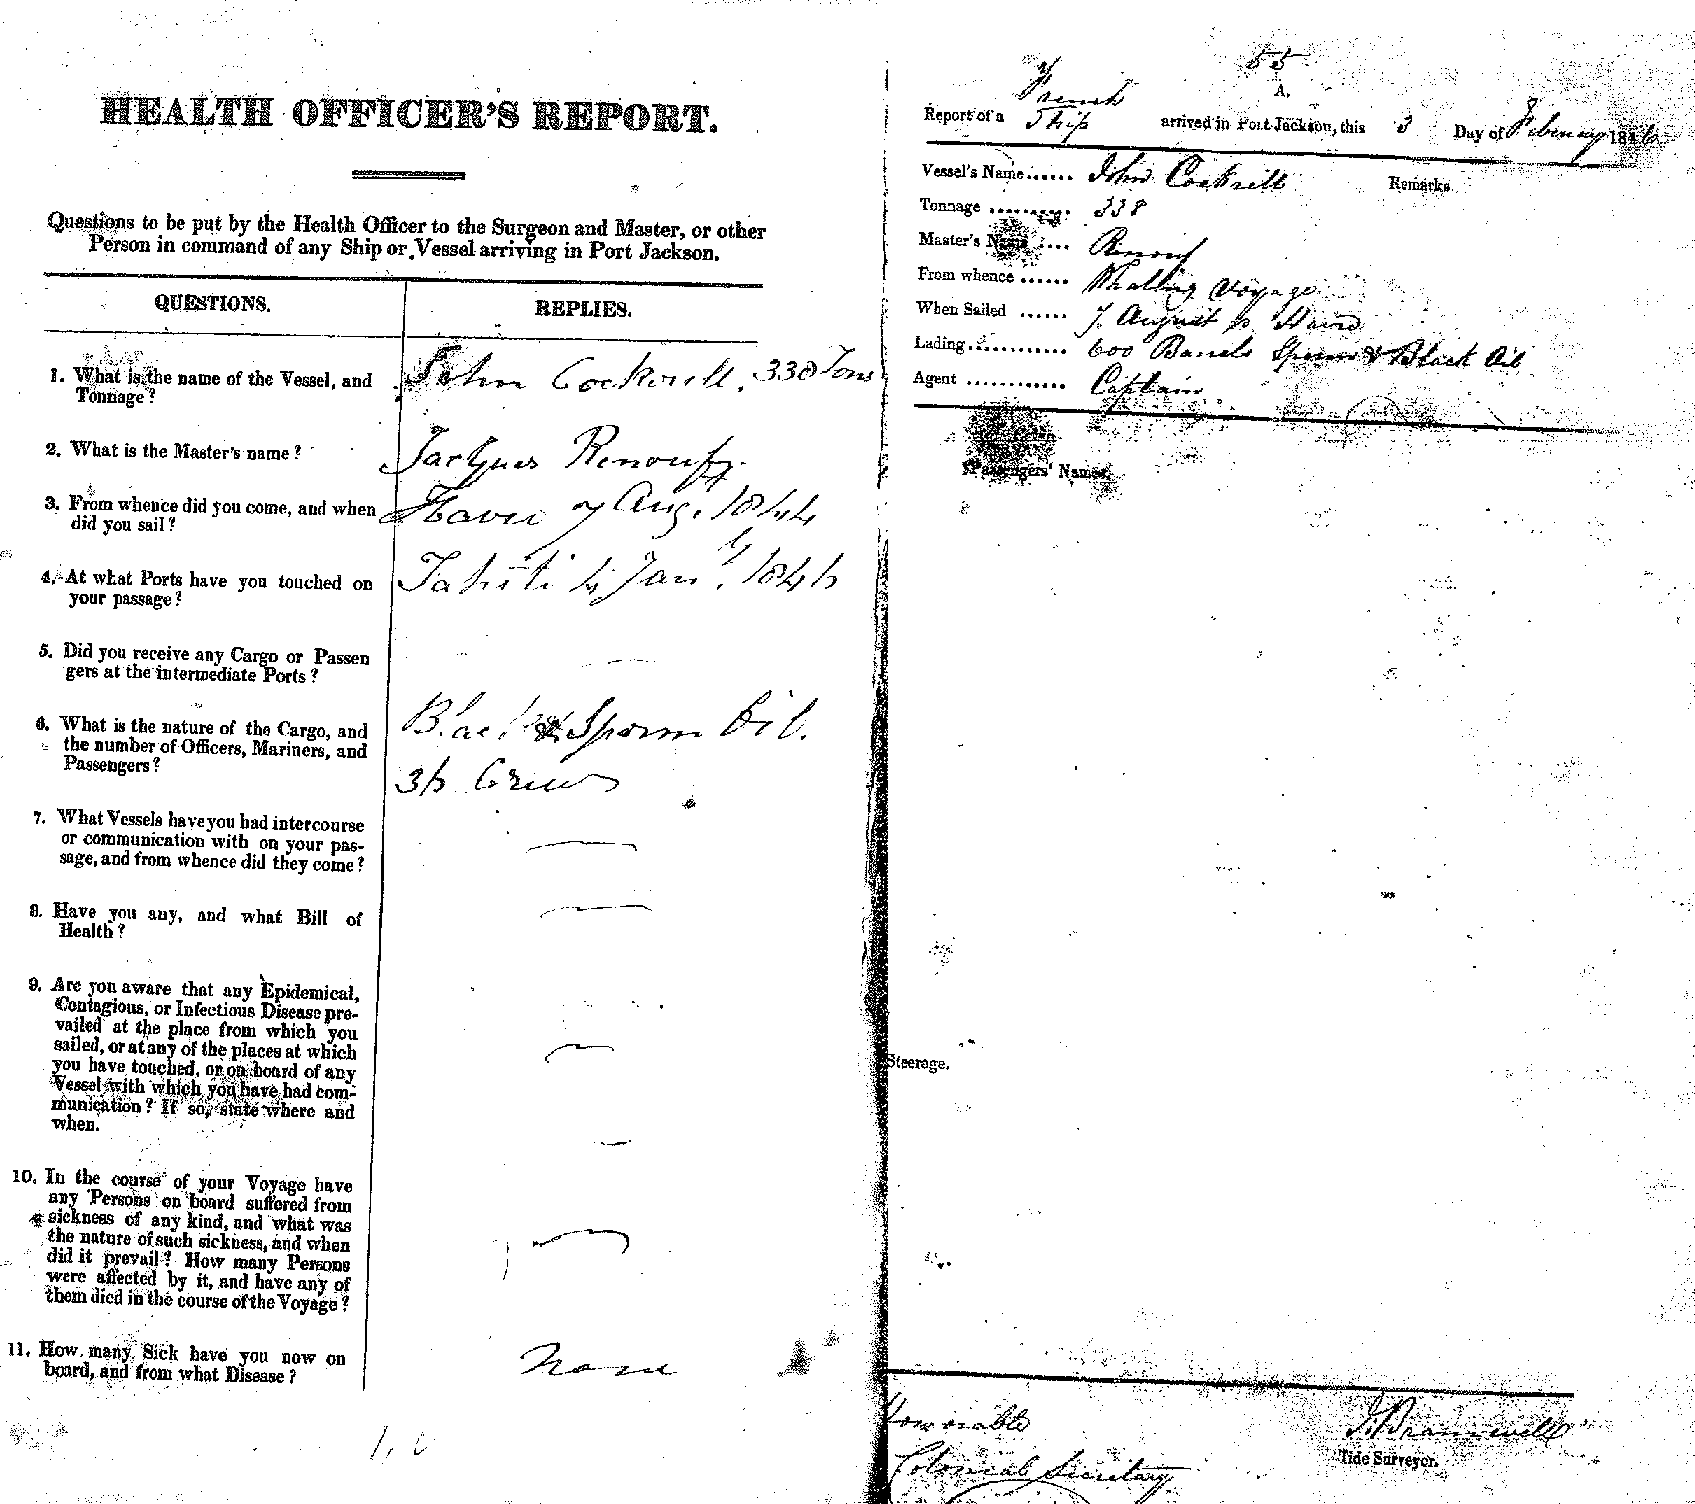 HEALTH OFFICER'S REPORT.
Questions to be put by the Health Officer to the Surgeon and Master, or other
Person in command of any Ship or Vessel arriving in Port Jackson.
QUESTIONS. REPLIES.
1. What is the name of the Vessel, and John Cockrill. 338 Tons
Tonnage?
2. What is the Master's name? Jacques Renouf
3. From whence did you come, and when Havre 7 Aug. 1844
did you sail?
4. At what Ports have you touched on Tahiti 4 Jany. 1846
your passage?
5. Did you receive any Cargo or Passen
gers at the intermediate Ports?
6. What is the nature of the Cargo, and Black & Sperm Oil.
the number of Officers, Mariners, and
Passengers? 36 Crew
7. What Vessels have you had intercourse
or communication with on your pas-
sage, and from whence did they come?
8. Have you any, and what Bill of
Health?
9. Are you aware that any Epidemical,
Contagious, or Infectious Disease pre-
vailed at the place from which you
sailed, or at any of the places at which
you have touched, or on board of any
Vessel with which you have had com-
munication? If so, state where and
when.
10. In the course of your Voyage have
any Persons on board suffered from
sickness of any kind, and what was
the nature of such sickness, and when
did it prevail? How many Persons
were affected by it, and have any of
them died in the course of the Voyage?
11. How many Sick have you now on None
board, and from what Disease?
55
A.
French
Report of a Ship arrived in Port Jackson, this 3 Day of February 1846
Vessel's Name...... John Cockrill Remarks
Tonnage .......... 338
Master's Name .... Renouf
From whence ...... Whaling Voyage
When Sailed ...... 7 August Havre
Lading............ 600 Barrels Sperm & Black Oil
Agent ............ Captain
Passengers' Names
Steerage.
Honorable
Colonial Secretary
Tide Surveyor.